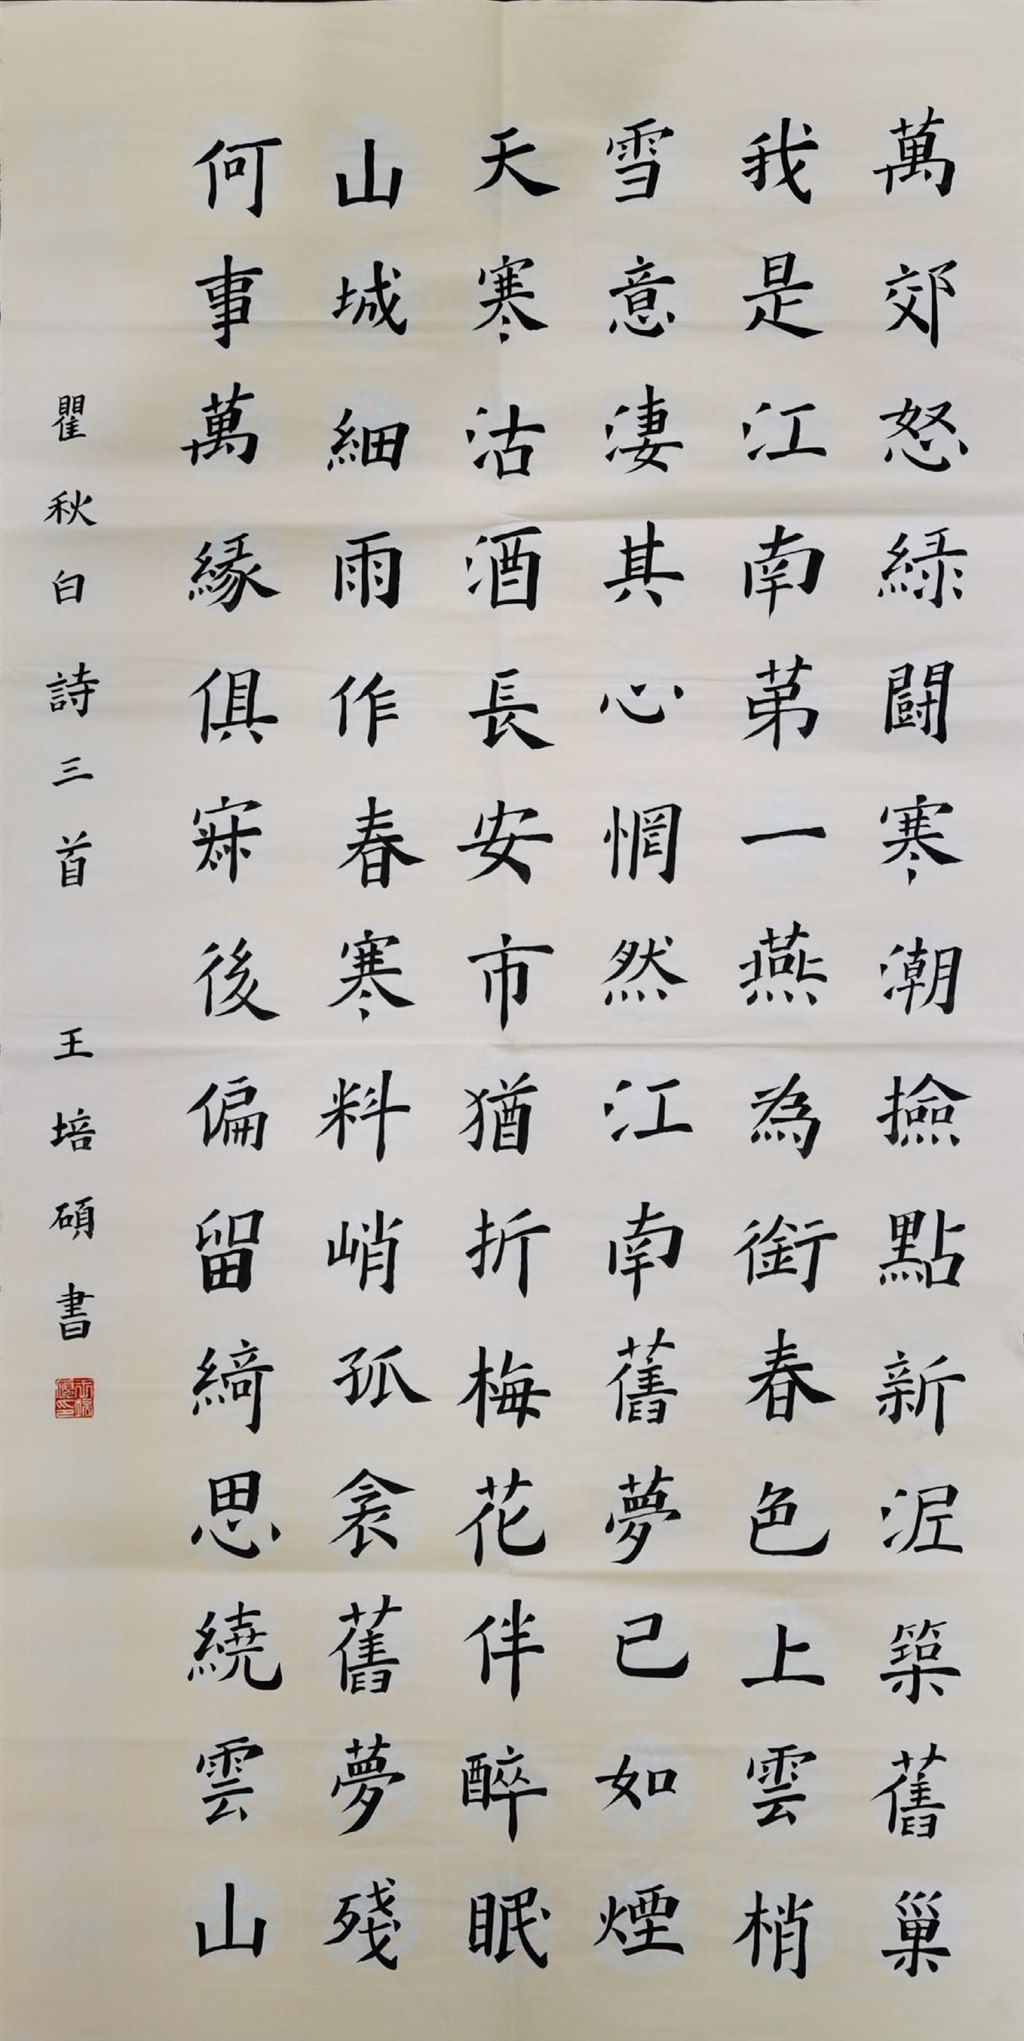 萬郊怒綠鬪寒潮撿點新泥築舊巢
我是江南苐一燕為銜春色上雲梢
雪意淒其心惘然江南舊夢已如煙
天寒沽酒長安市猶折梅花伴醉眠
山城細雨作春寒料峭孤衾舊夢殘
何事萬緣俱寂後偏留綺思繞雲山
瞿秋白詩三首 王培碩書